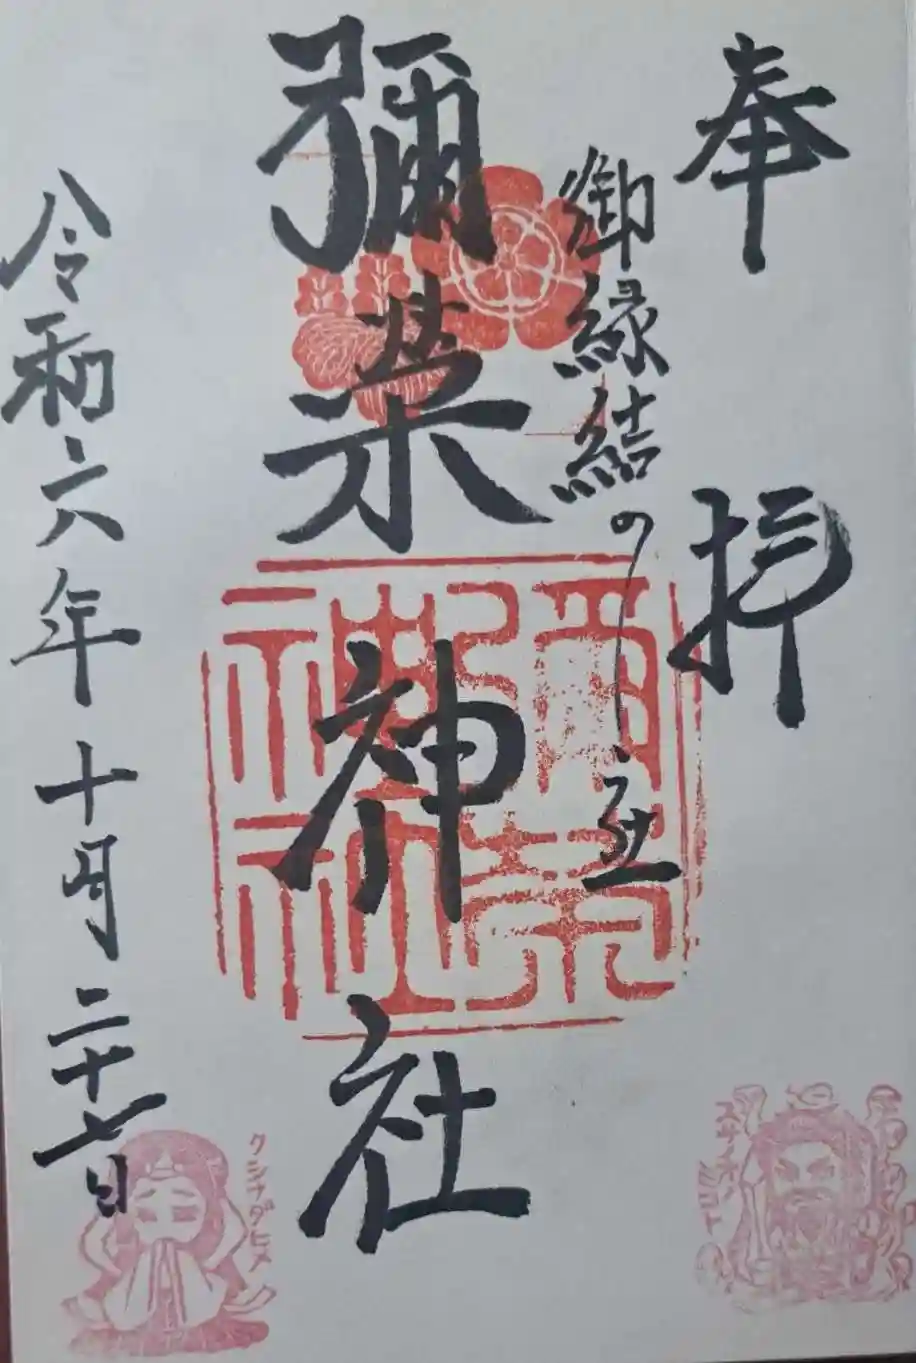 奉拝
御縁結の社
彌榮神社
令和六年十月二十七日
彌榮神社
スサノオノミコト
クシナダヒメ